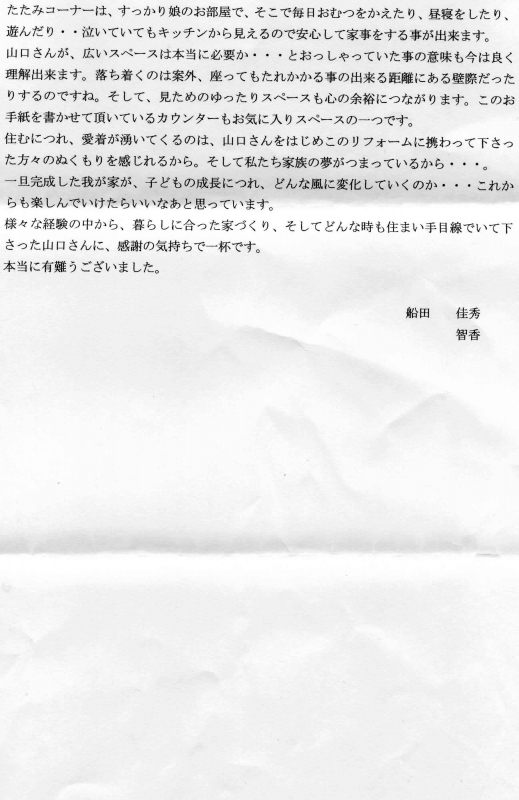 たたみコーナーは、すっかり娘のお部屋で、そこで毎日おむつをかえたり、昼寝をしたり、
遊んだり・・泣いていてもキッチンから見えるので安心して家事をする事が出来ます。
山口さんが、広いスペースは本当に必要か・・・とおっしゃっていた事の意味も今は良く
理解出来ます。落ち着くのは案外、座ってもたれかかる事の出来る距離にある壁際だった
りするのですね。そして、見ためのゆったりスペースも心の余裕につながります。このお
手紙を書かせて頂いているカウンターもお気に入りスペースの一つです。
住むにつれ、愛着が湧いてくるのは、山口さんをはじめこのリフォームに携わって下さっ
た方々のぬくもりを感じれるから。そして私たち家族の夢がつまっているから・・・。
一旦完成した我が家が、子どもの成長につれ、どんな風に変化していくのか・・・これか
らも楽しんでいけたらいいなあと思っています。
様々な経験の中から、暮らしに合った家づくり、そしてどんな時も住まい手目線でいて下
さった山口さんに、感謝の気持ちで一杯です。
本当に有難うございました。
船田　佳秀
智香